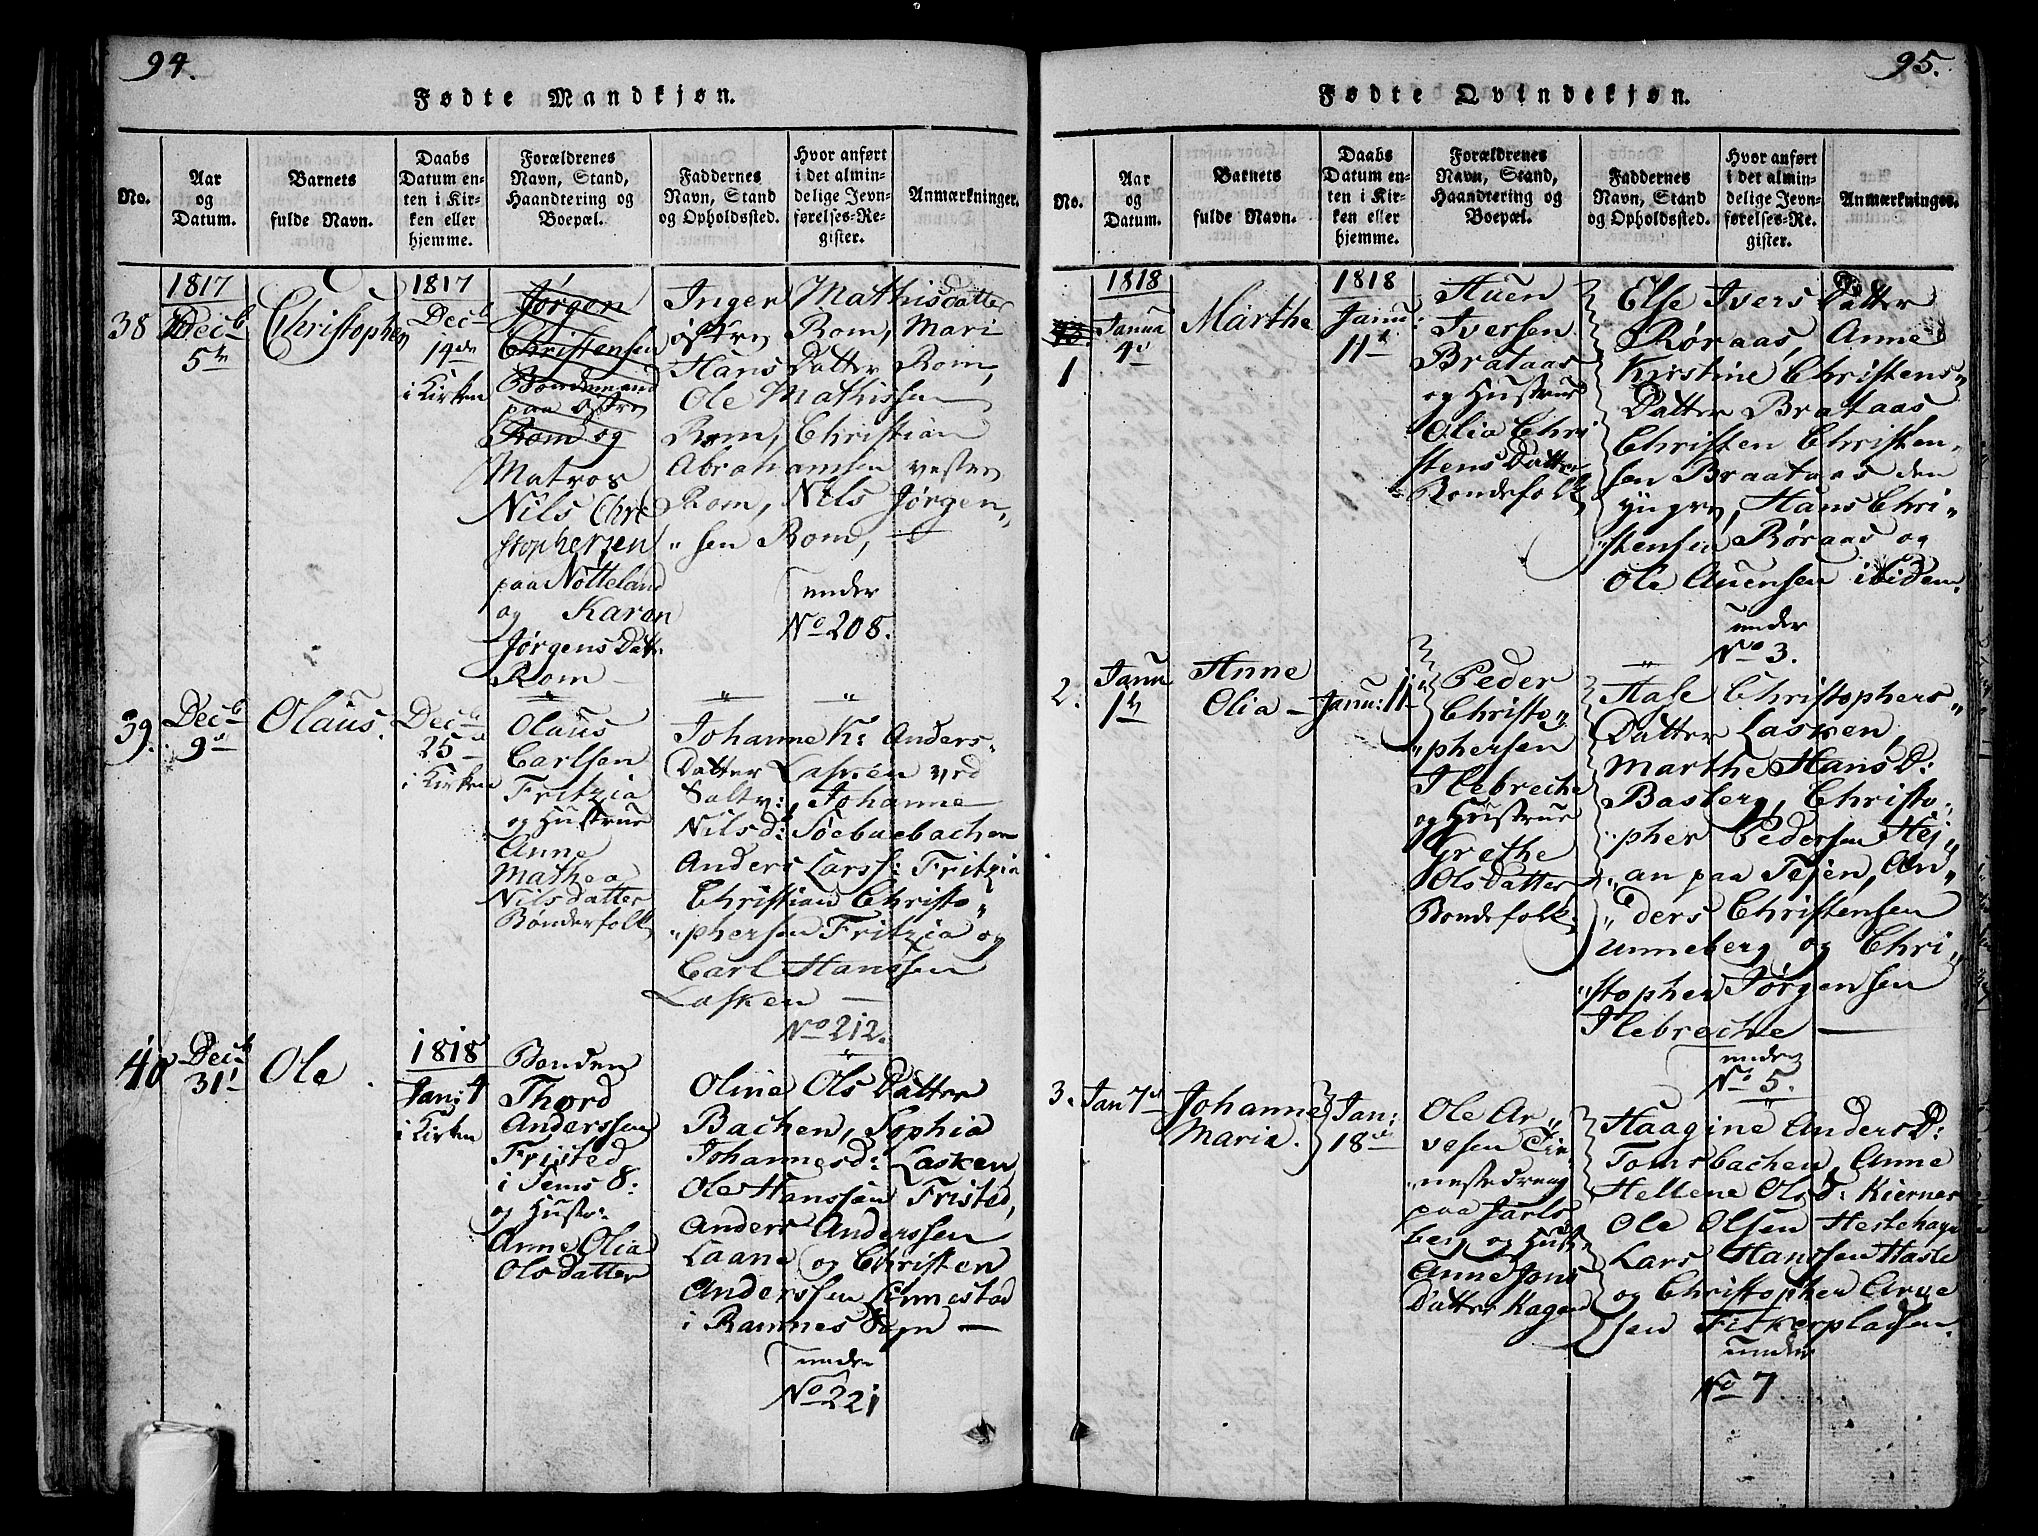 94.
Fødte Mandkjøn.
No.
Aar
og
Datum.
Barnets
fulde Navn.
Daabs
Datum en-
ten i Kir-
ken eller
hjemme.
Forældrenes
Navn, Stand,
Haandtering og
Boepæl.
Faddernes
Navn, Stand
og Opholdssted.
Hvor anført
i det almin-
delige Jevn-
førelses-Re-
gister.
Anmærkninger.
38
1817
Decb
5te
Christopher
1817
Decb
14de
i Kirken
Jørgen
Christensen
Bondemand
paa østre
Rom og
Matros
Nils Chri
stophersen
paa Nøtteland
og Karen
Jørgens Datt:
Rom
Inger Mathisdatter
østre Rom, Mari
Hans Datter Rom,
Ole Mathissen
Rom, Christian
Abrahamsen vestre
Rom, Nils Jørgen„
„sen Rom, —
under
No 208.
39.
Decb
9de
Olaus.
Decb
25de
i Kirken
Olaus
Carlsen
Fritzia
og Hustrue
Anne
Mathea
Nilsdatter
Bønderfolk
Johanne K: Anders-
Datter Lasken ved
Saltv:, Johanne
Nilsd: Søebuebachen
Anders Larss: Fritzia
Christian Christo„
„phersen Fritzia og
Carl Hanssen
Lasken —
No 212.
40
Decb
31te
Ole.
1818
Jan: 4
i Kirken
Bonden
Thord
Anderssen
Fristed
i Sems S:
og Hustr:
Anne Olia
Olsdatter
Oline Ols Datter
Bachen, Sophia
Johannesd: Lasken,
Ole Hanssen Fristed,
Anders Anderssen
Laane og Christen
Anderssen Linnestad
i Ramnes Sogn —
under
No 221
95.
Fødte Qvindekjøn.
No.
Aar
og
Datum.
Barnets
fulde Navn.
Daabs
Datum en-
ten i Kir-
ken eller
hjemme.
Forældrenes
Navn, Stand,
Haandtering og
Boepæl.
Faddernes
Navn, Stand
og Opholdssted.
Hvor anført
i det almin-
delige Jevn-
førelses-Re-
gister.
Anmærkninger.
1
1818
Janua
4de
Marthe
1818
Janu:
11te
Auen
Iversen
Brataas
og Hustrue
Olia Chri
stens Datter
Bondefolk
Else Ivers Datter
Røraas, Anne
Kristine Christens„
Datter Brataas,
Christen Christen„
sen Braataas den
yngre, Hans Chri„
„stensen Røraas og
Ole Auensen ibidem.
under
No 3.
2.
Janu
1te
Anne
Olia —
Janu: 11
Peder
Christo„
„phersen
Ilebreche
og Hustrue
Grethe
Olsdatter
Bondefolk.
Aase Christophers„
Datter Lasken,
Marthe Hans D:
Basberg, Christo„
„pher Pedersen Hej„
„an paa Tejen, An„
„ders Christensen
Unneberg og Chri„
„stopher Jørgensen
Ilebreche —
under
No 5.
3.
Jan 7de
Johanne
Maria.
Jan:
18de
Ole Ar„
vesen Tie„
„nestedreng
paa Jarls
berg og Hust:
Anne Jons
Datter Hagen
Haagine Anders D:
Tomsbachen, Anne
Hellene Olsd: Kiernes
Ole Olsen Hestehagen
Lars Hanssen Hasle
og Christopher Arve
sen Fiskerpladsen.
under
No 7